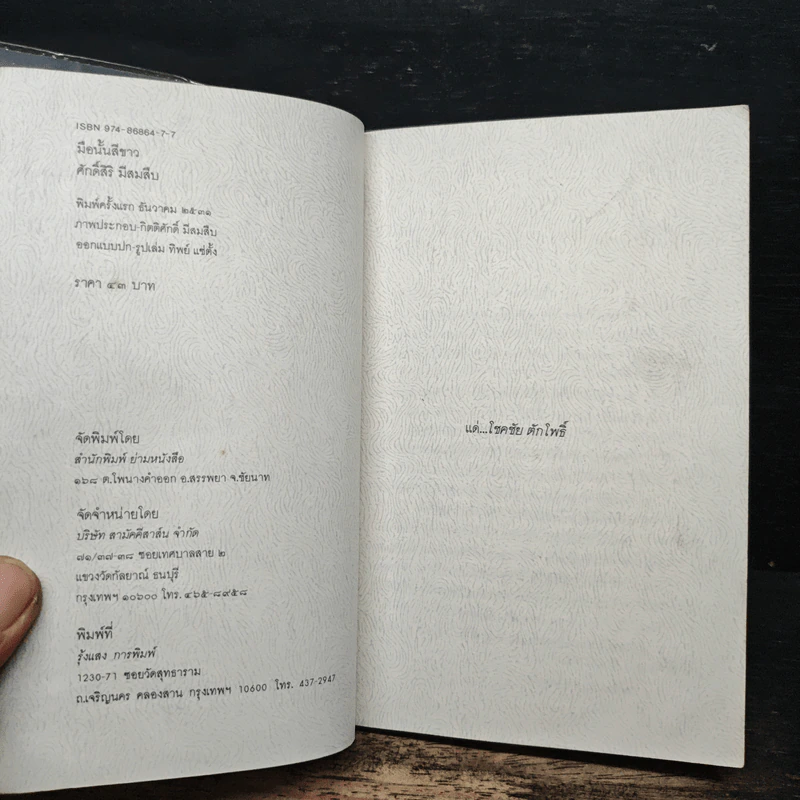 ISBN 974-86864-7-7
มือนั้นสีขาว
ศักดิ์สิริ มีสมสืบ
พิมพ์ครั้งแรก ธันวาคม ๒๕๓๑
ภาพประกอบ-กิตติศักดิ์ มีสมสืบ
ออกแบบปก-รูปเล่ม ทิพย์ แซ่ตั้ง
ราคา ๔๓ บาท
จัดพิมพ์โดย
สำนักพิมพ์ ย่ามหนังสือ
๑๖๘ ต.โพนางดำออก อ.สรรพยา จ.ชัยนาท
จัดจำหน่ายโดย
บริษัท สามัคคีสาส์น จำกัด
๗๑/๓๗-๓๘ ซอยเทศบาลสาย ๒
แขวงวัดกัลยาณ์ ธนบุรี
กรุงเทพฯ ๑๐๖๐๐ โทร. ๔๖๕-๘๙๕๘
พิมพ์ที่
รุ้งแสง การพิมพ์
1230-71 ซอยวัดสุทธาราม
ถ.เจริญนคร คลองสาน กรุงเทพฯ 10600 โทร. 437-2947
แด่...โชคชัย ตักโพธิ์